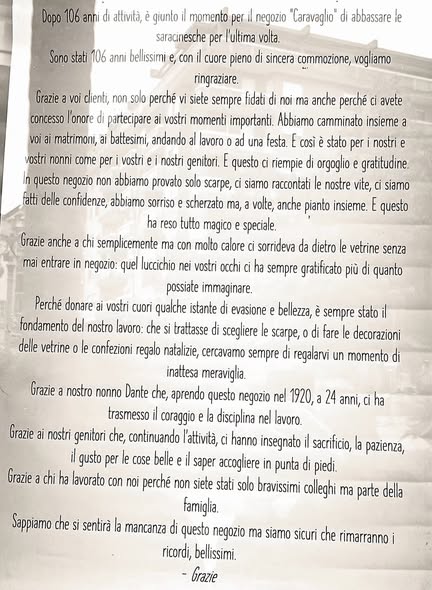 Dopo 106 anni di attività, è giunto il momento per il negozio "Caravaglio" di abbassare le
saracinesche per l'ultima volta.
Sono stati 106 anni bellissimi e, con il cuore pieno di sincera commozione, vogliamo
ringraziare.
Grazie a voi clienti, non solo perché vi siete sempre fidati di noi ma anche perché ci avete
concesso l'onore di partecipare ai vostri momenti importanti. Abbiamo camminato insieme a
voi ai matrimoni, ai battesimi, andando al lavoro o ad una festa. E così è stato per i nostri e
vostri nonni come per i vostri e i nostri genitori. E questo ci riempie di orgoglio e gratitudine.
In questo negozio non abbiamo provato solo scarpe, ci siamo raccontati le nostre vite, ci siamo
fatti delle confidenze, abbiamo sorriso e scherzato ma, a volte, anche pianto insieme. E questo
ha reso tutto magico e speciale.
Grazie anche a chi semplicemente ma con molto calore ci sorrideva da dietro le vetrine senza
mai entrare in negozio: quel luccichio nei vostri occhi ci ha sempre gratificato più di quanto
possiate immaginare.
Perché donare ai vostri cuori qualche istante di evasione e bellezza, è sempre stato il
fondamento del nostro lavoro: che si trattasse di scegliere le scarpe, o di fare le decorazioni
delle vetrine o le confezioni regalo natalizie, cercavamo sempre di regalarvi un momento di
inattesa meraviglia.
Grazie a nostro nonno Dante che, aprendo questo negozio nel 1920, a 24 anni, ci ha
trasmesso il coraggio e la disciplina nel lavoro.
Grazie ai nostri genitori che, continuando l'attività, ci hanno insegnato il sacrificio, la pazienza,
il gusto per le cose belle e il saper accogliere in punta di piedi.
Grazie a chi ha lavorato con noi perché non siete stati solo bravissimi colleghi ma parte della
famiglia.
Sappiamo che si sentirà la mancanza di questo negozio ma siamo sicuri che rimarranno i
ricordi, bellissimi.
- Grazie